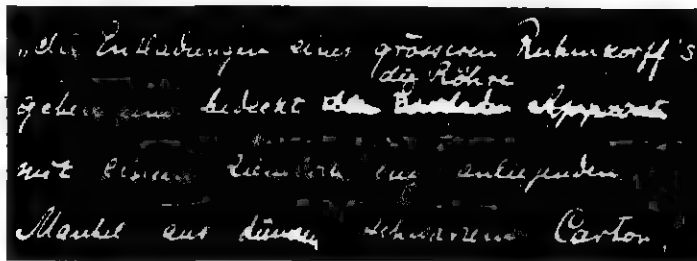 „die Entladungen eines grösseren Ruhmkorff's
die Röhre
gehen und bedeckt Apparat
mit einem ziemlich eng anliegenden
Mantel aus dünnem schwarzem Carton,